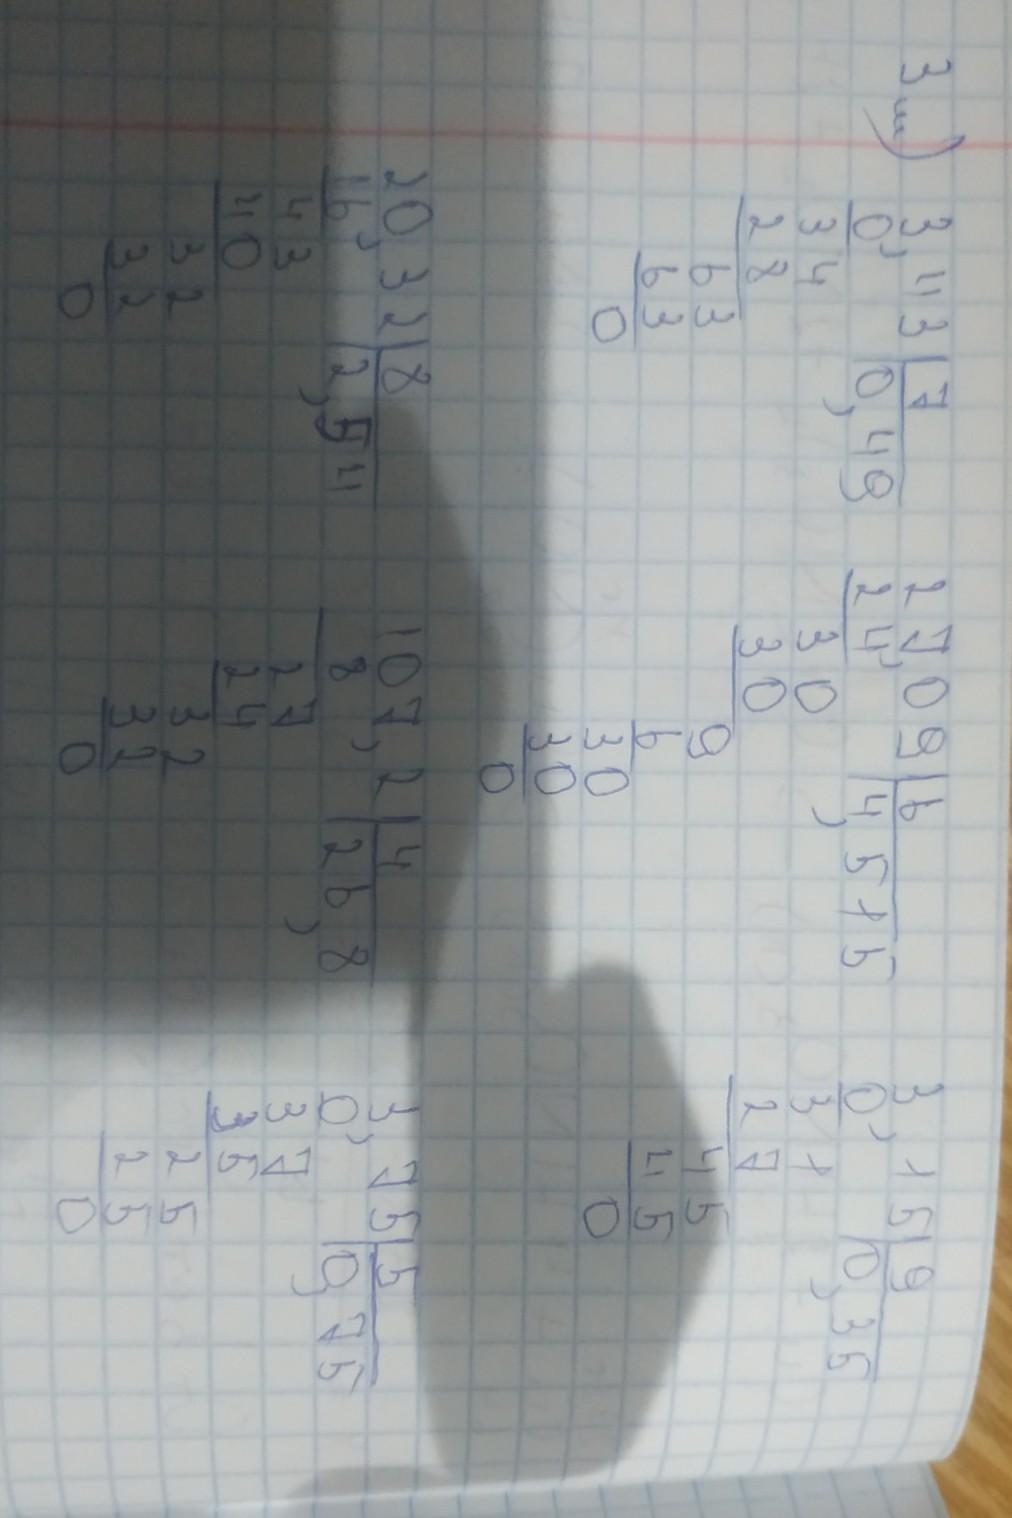 3 ш)
3,43 | 7
0, | 0,49
34
28
63
63
0
27,09 | 6
24, | 4,515
30
30
9
6
30
30
0
3,15 | 9
0, | 0,35
31
27
45
45
0
20,32 | 8
16, | 2,54
43
40
32
32
0
107,2 | 4
8 | 26,8
27
24
32
32
0
3,75 | 5
0, | 0,75
37
35
25
25
0